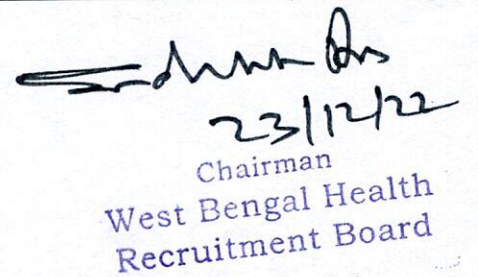 23/12/22
Chairman
West Bengal Health
Recruitment Board